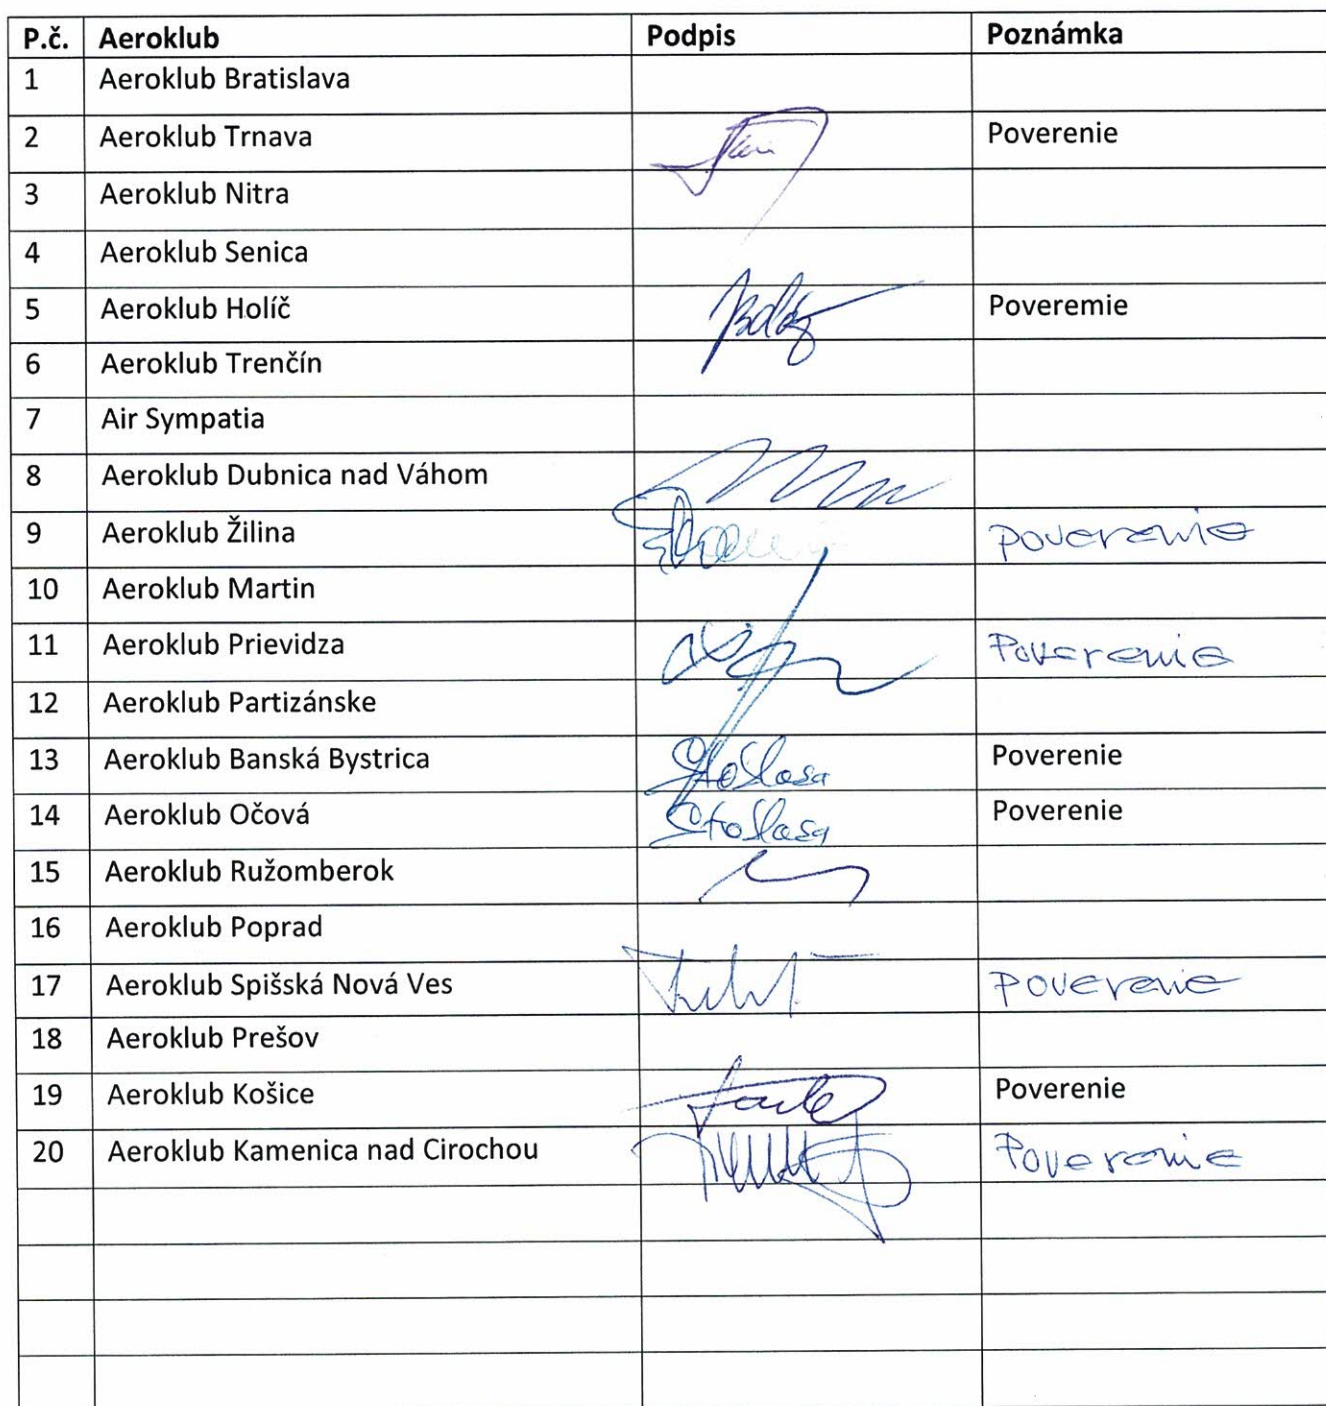 P.č. Aeroklub Podpis Poznámka
1 Aeroklub Bratislava
2 Aeroklub Trnava Poverenie
3 Aeroklub Nitra
4 Aeroklub Senica
5 Aeroklub Holíč Poveremie
6 Aeroklub Trenčín
7 Air Sympatia
8 Aeroklub Dubnica nad Váhom
9 Aeroklub Žilina Poverenie
10 Aeroklub Martin
11 Aeroklub Prievidza Poverenie
12 Aeroklub Partizánske
13 Aeroklub Banská Bystrica Poverenie
14 Aeroklub Očová Poverenie
15 Aeroklub Ružomberok
16 Aeroklub Poprad
17 Aeroklub Spišská Nová Ves Poverenie
18 Aeroklub Prešov
19 Aeroklub Košice Poverenie
20 Aeroklub Kamenica nad Cirochou Poverenie